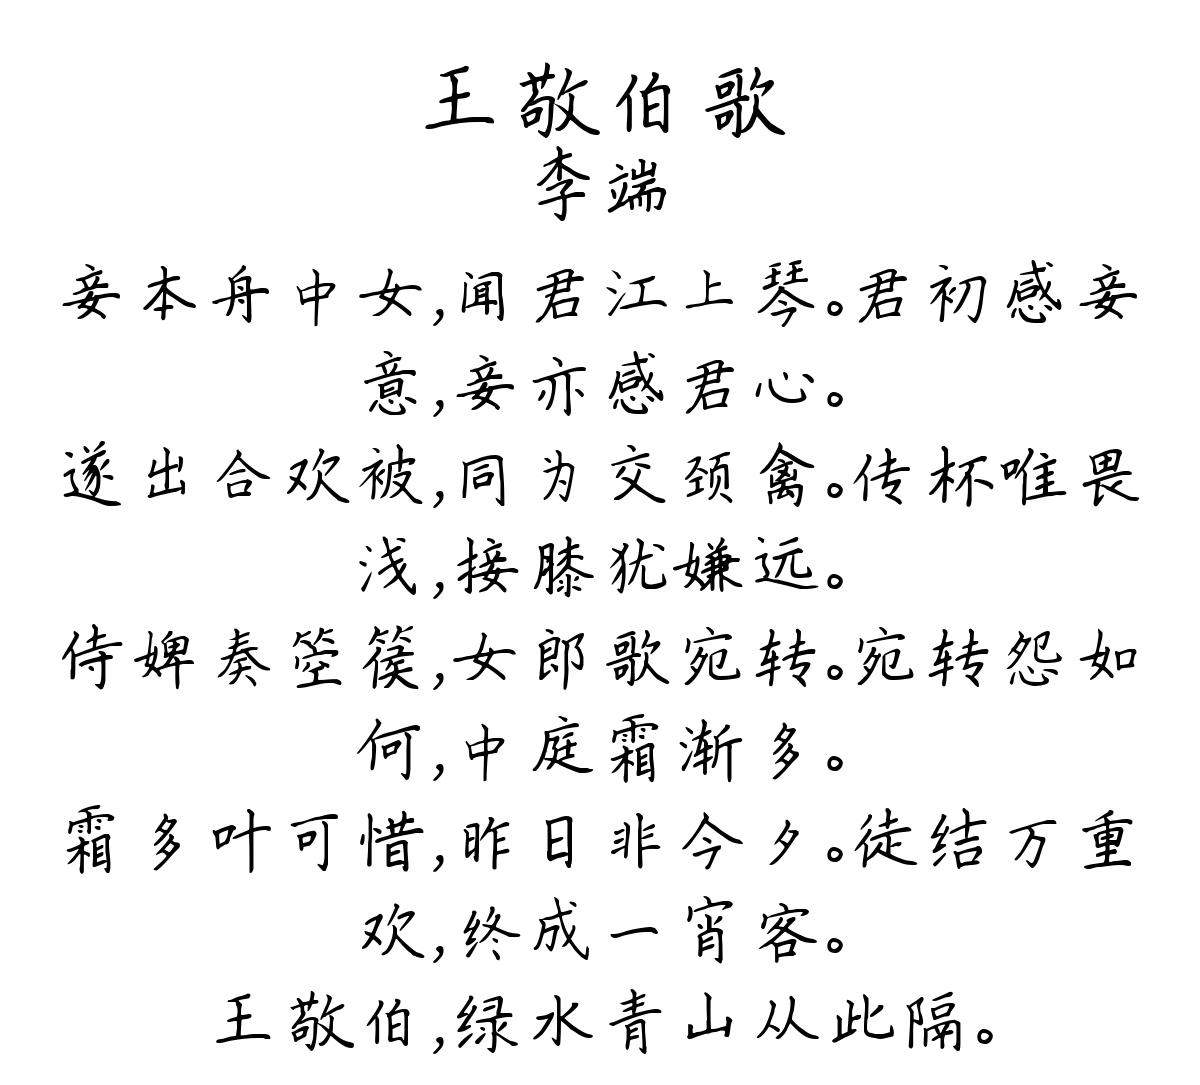 王敬伯歌
李端
妾本舟中女,闻君江上琴。君初感妾
意,妾亦感君心。
遂出合欢被,同为交颈禽。传杯唯畏
浅,接膝犹嫌远。
侍婢奏箜篌,女郎歌宛转。宛转怨如
何,中庭霜渐多。
霜多叶可惜,昨日非今夕。徒结万重
欢,终成一宵客。
王敬伯,绿水青山从此隔。